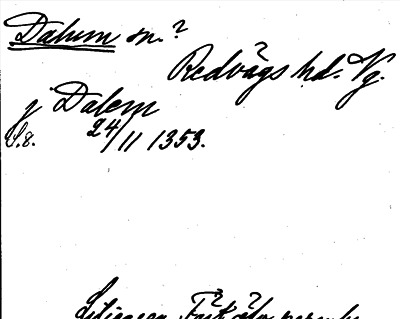 Dalum sn.?
Redvägs hd. Vg.
j Dalem
S.8. 24/11 1353.